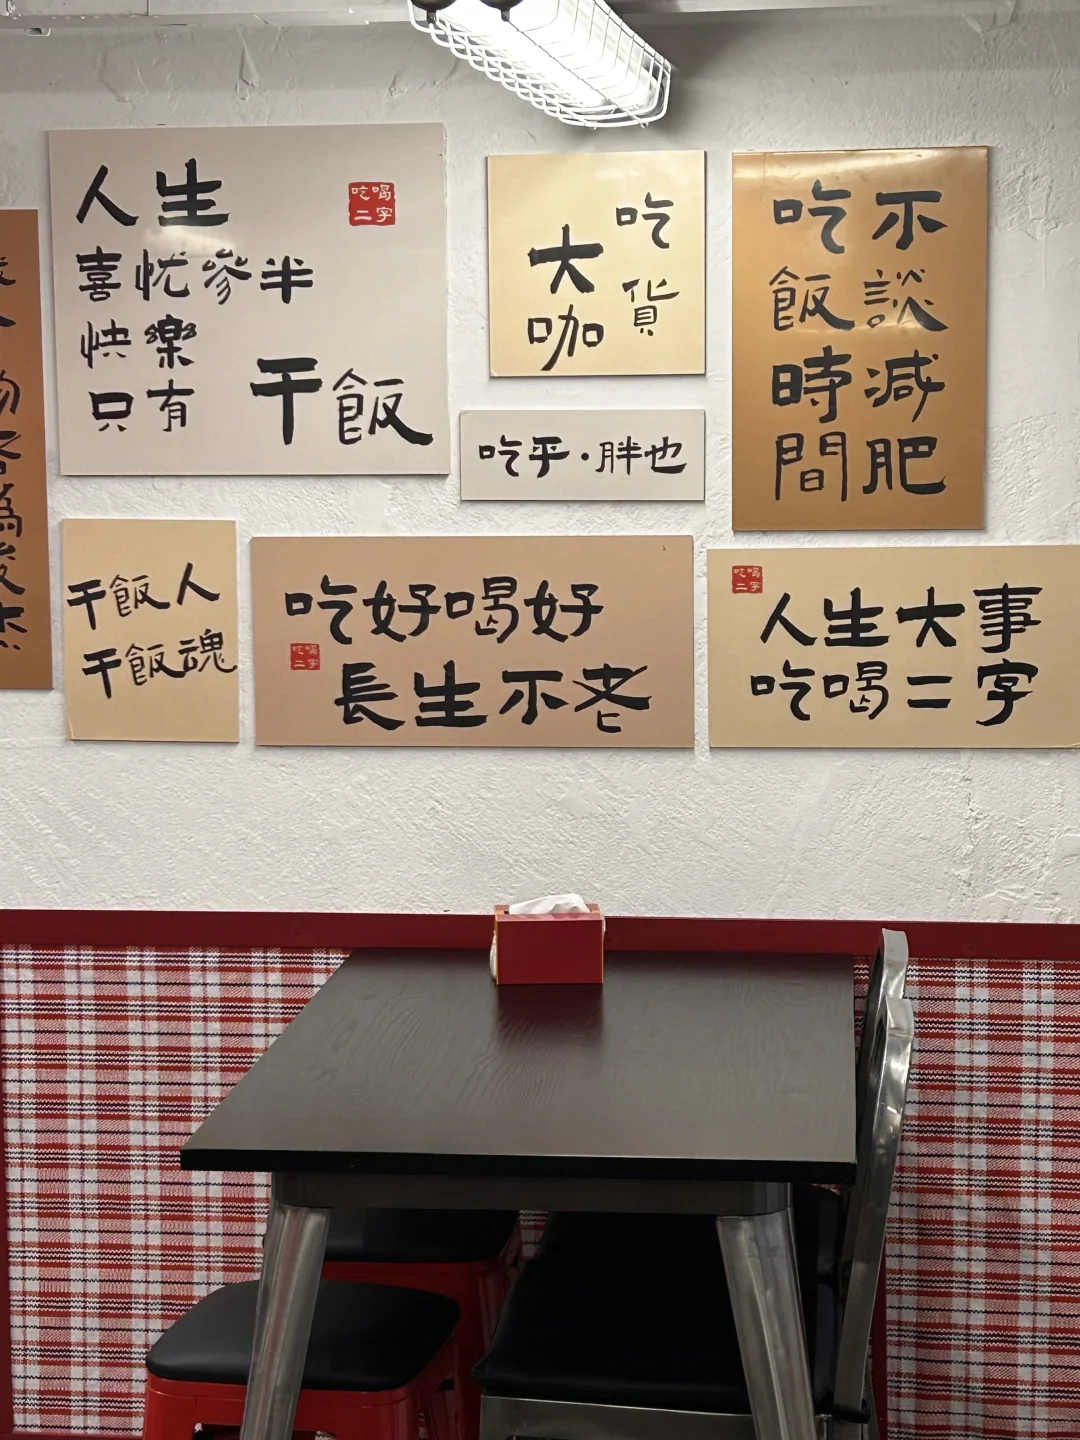 人生
喜忧參半
快樂
只有
干飯
吃喝
二字
吃貨
大咖
吃飯時間
不談減肥
吃乎·胖也
干飯人
干飯魂
吃好喝好
長生不老
吃喝
二字
吃喝
二字
人生大事
吃喝二字